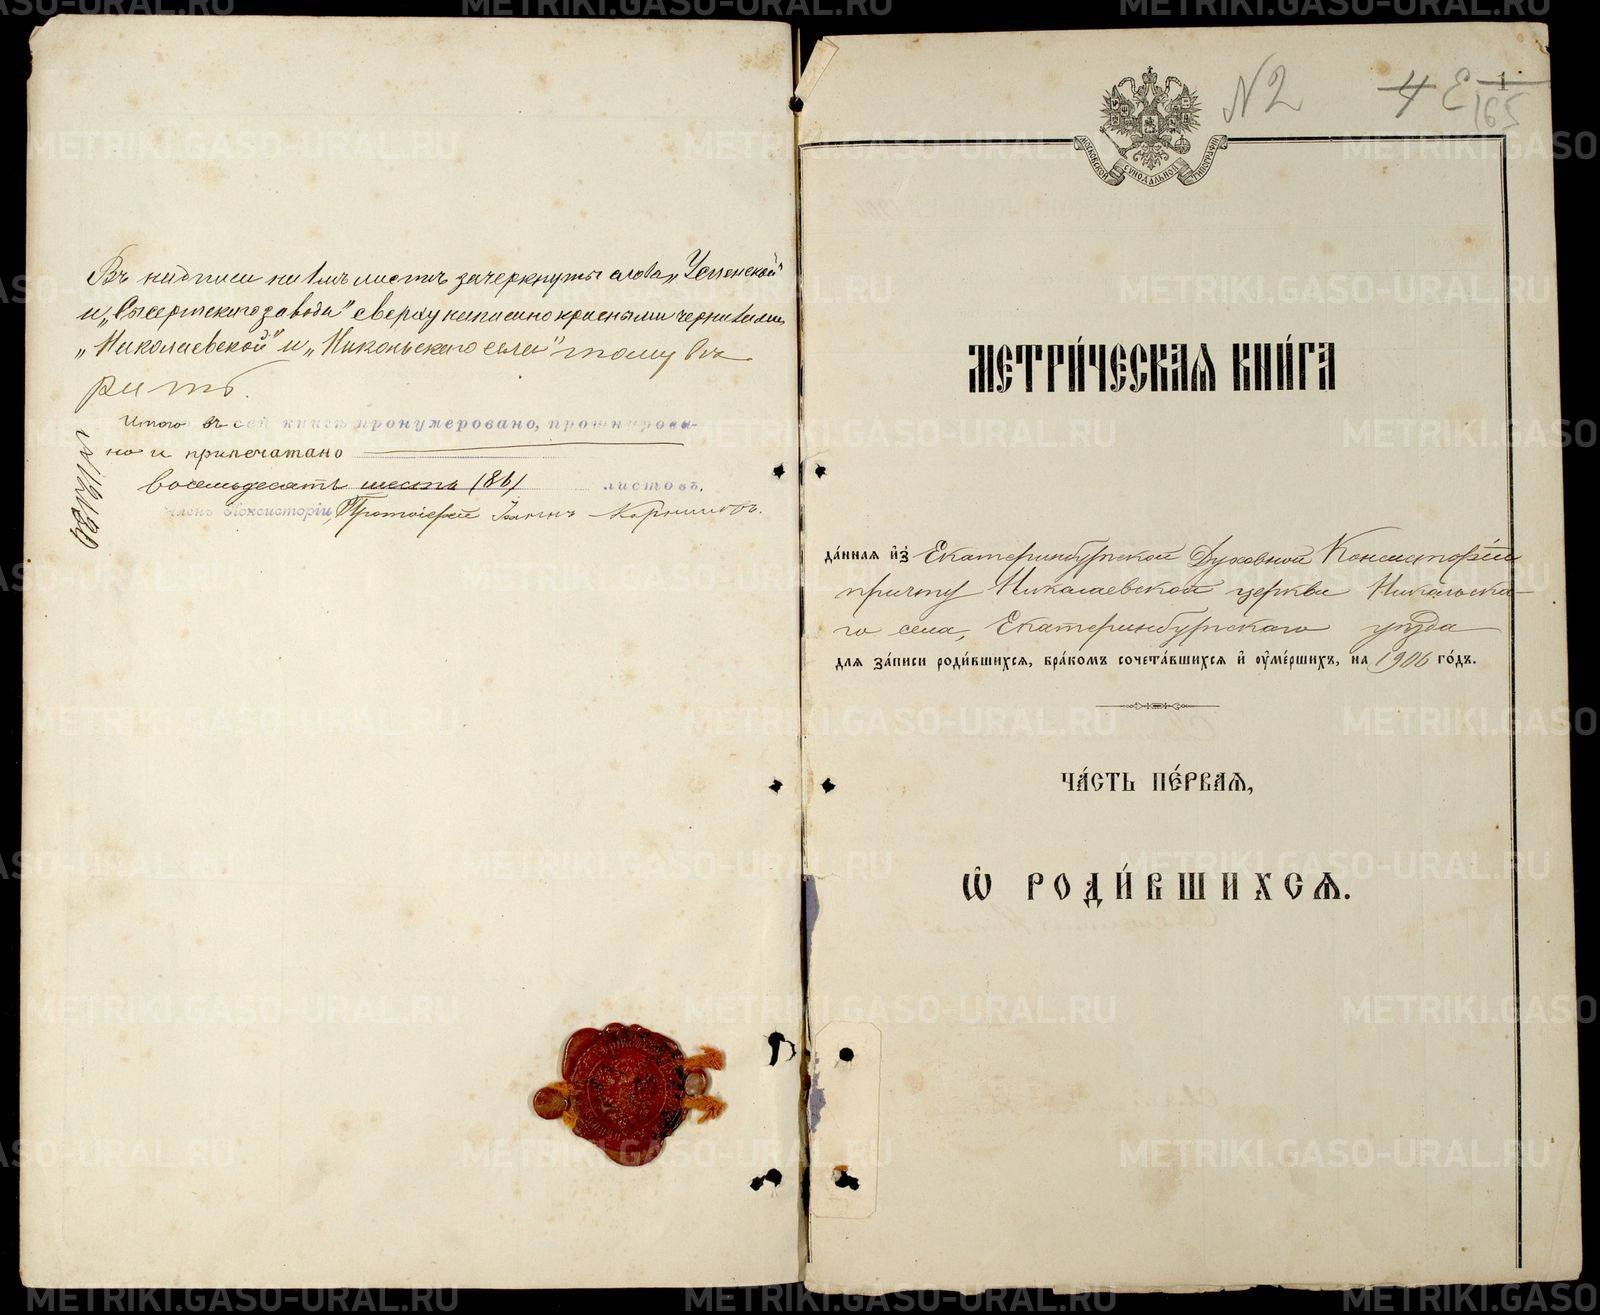 Въ надписи на 1мъ листѣ зачеркнуты слова „Успенской"
и „Сысертскаго завода" сверху написано красными чернилами
„Николаевской" и „Никольскаго села" тому вѣ
рить.
Итого въ сей книгѣ пронумеровано, прошнурова-
но и припечатано
восемьдесятъ шесть /86/ листовъ.
Членъ Консисторіи, Протоіерей Іоаннъ
N 2
4 Е 1
165
МОСКОВСКОЙ СѴНОДАЛЬНОЙ ТИПОГРАФІИ
МЕТРИ́ЧЕСКАѦ КНИ́ГА
да́ннаѧ и҆з̾ Екатеринбургской Духовной Консисторіи
причту Николаевской церкви Никольска-
го села, Екатеринбургскаго уѣзда
длѧ за́писи роди́вшихсѧ, бра́комъ сочета́вшихсѧ и҆ ᲂу҆ме́ршихъ, на 1906 го́дъ.
ЧА́СТЬ ПЕ́РВАѦ,
Ѡ҆ РОДИ́ВШИХСѦ.
METRIKI.GASO-URAL.RU